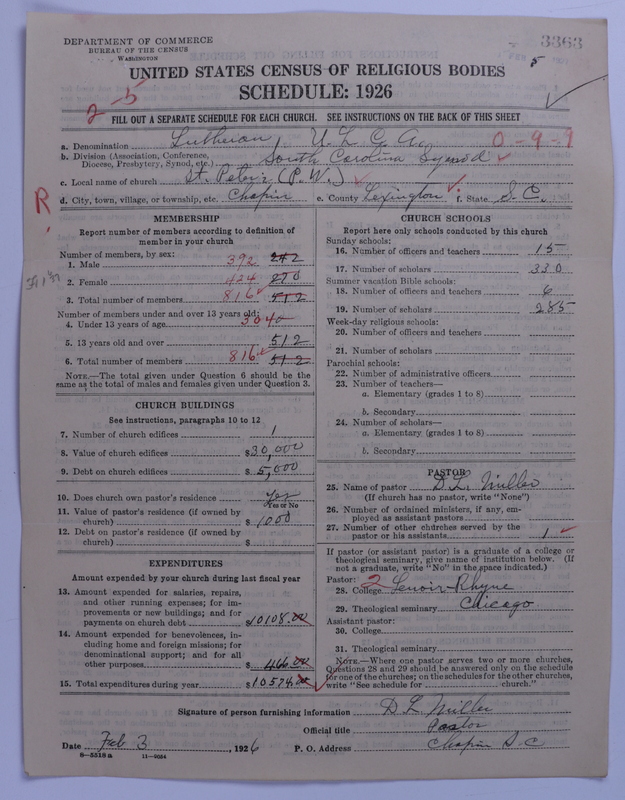 DEPARTMENT OF COMMERCE
BUREAU OF THE CENSUS
WASHINGTON
3363
5
UNITED STATES CENSUS OF RELIGIOUS BODIES
SCHEDULE: 1926
2-5
FILL OUT A SEPARATE SCHEDULE FOR EACH CHURCH. SEE INSTRUCTIONS ON THE BACK OF THIS SHEET
a. Denomination Lutheran, U. L. C. A. 0-9-9
b. Division (Association, Conference, Diocese, Presbytery, Synod, etc.) South Carolina Synod
c. Local name of church St. Peter's (P.W.)
R
d. City, town, village, or township, etc. Chapin e. County Lexington f. State S.C.
MEMBERSHIP
Report number of members according to definition of
member in your church
Number of members, by sex:
1. Male 392 242
2. Female 424 270
3. Total number of members 816 512
Number of members under and over 13 years old:
4. Under 13 years of age 304
5. 13 years old and over 512
6. Total number of members 816 512
NOTE.—The total given under Question 6 should be the
same as the total of males and females given under Question 3.
CHURCH BUILDINGS
See instructions, paragraphs 10 to 12
7. Number of church edifices 1
8. Value of church edifices $30,000
9. Debt on church edifices $5,000
10. Does church own pastor's residence Yes
Yes or No
11. Value of pastor's residence (if owned by
church) $1000
12. Debt on pastor's residence (if owned by
church) $
EXPENDITURES
Amount expended by your church during last fiscal year
13. Amount expended for salaries, repairs,
and other running expenses; for im-
provements or new buildings; and for
payments on church debt 10108.00
14. Amount expended for benevolences, in-
cluding home and foreign missions; for
denominational support; and for all
other purposes $466.00
15. Total expenditures during year $10574.00
CHURCH SCHOOLS
Report here only schools conducted by this church
Sunday schools:
16. Number of officers and teachers 15
17. Number of scholars 330
Summer vacation Bible schools:
18. Number of officers and teachers 6
19. Number of scholars 285
Week-day religious schools:
20. Number of officers and teachers
21. Number of scholars
Parochial schools:
22. Number of administrative officers
23. Number of teachers—
a. Elementary (grades 1 to 8)
b. Secondary
24. Number of scholars—
a. Elementary (grades 1 to 8)
b. Secondary
PASTOR
25. Name of pastor D. L. Miller
(If church has no pastor, write "None")
26. Number of ordained ministers, if any, em-
ployed as assistant pastors
27. Number of other churches served by the
pastor or his assistants 1
If pastor (or assistant pastor) is a graduate of a college or
theological seminary, give name of institution below. (If
not a graduate, write "No" in the space indicated.)
Pastor:
28. College 2 Lenoir Rhyne
29. Theological seminary Chicago
Assistant pastor:
30. College
31. Theological seminary
NOTE.—Where one pastor serves two or more churches,
Questions 28 and 29 should be answered only on the schedule
for one of the churches; on the schedules for the other churches,
write "See schedule for church."
Signature of person furnishing information D L Miller
Official title Pastor
Date Feb 3, 1926 P. O. Address Chapin S.C
8-5518a 11-9054